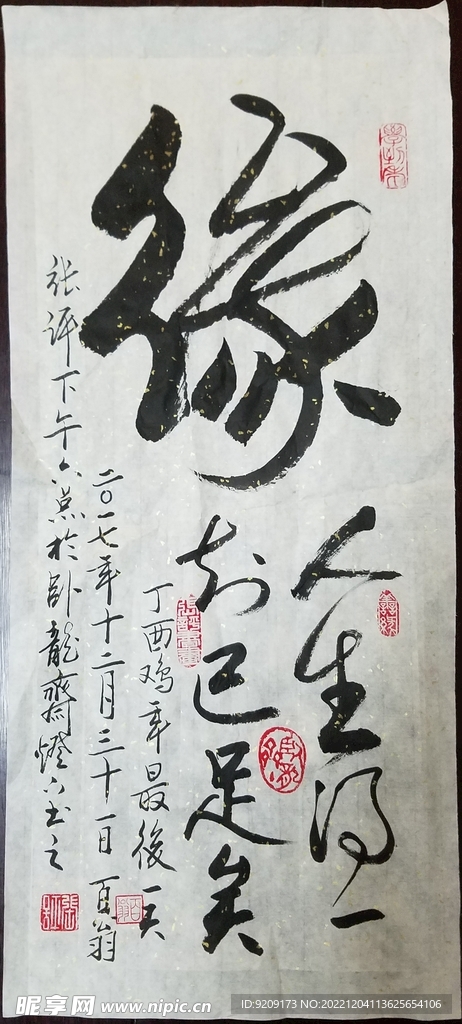 缘
人生得一
知己足矣
丁酉鸡年最後一天
二〇一七年十二月三十一日 百翁
张評下午六点於卧龍齋燈下书之
昵享网 www.nipic.cn
ID:9209173 NO:20221204113625654106